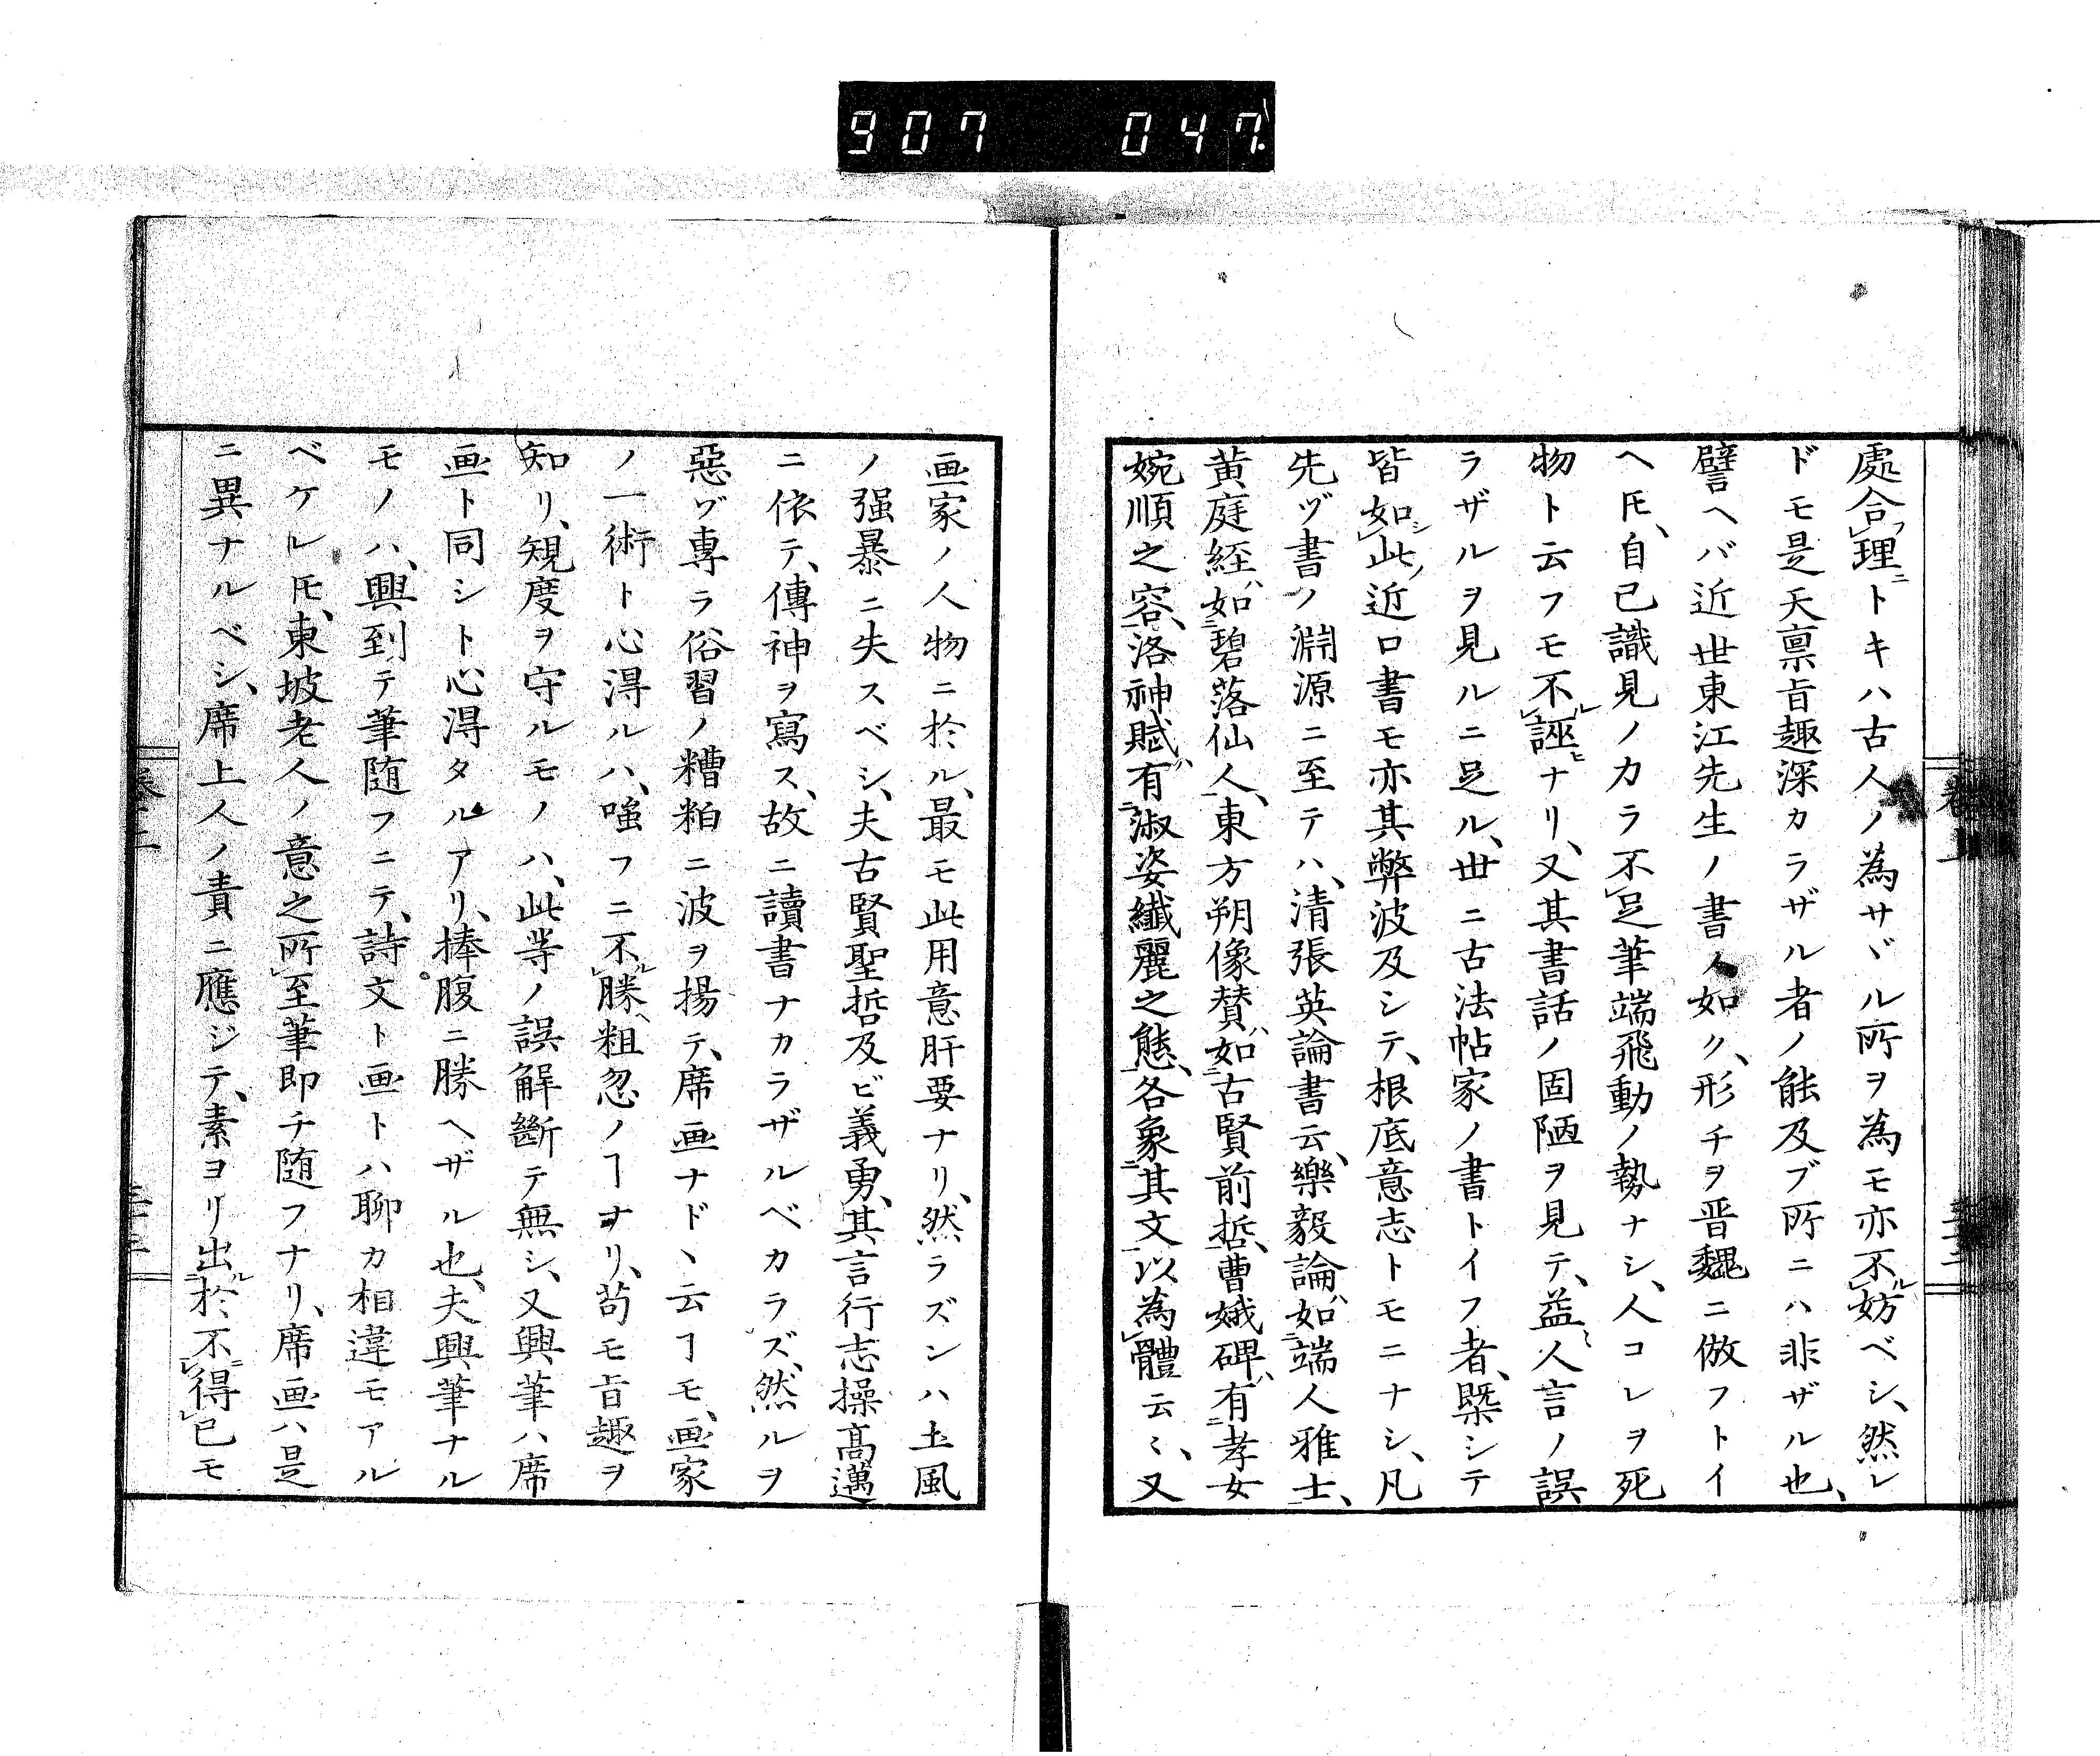 907 047
處合理ニトキハ古人ノ為サヾル所ヲ為モ亦不妨ベシ、然レ
ドモ是天禀旨趣深カラザル者ノ能及ブ所ニハ非ザル也、
譬ヘバ近世東江先生ノ書ノ如ク、形チヲ晋魏ニ倣フトイ
ヘ𪜈、自己識見ノカラ不足筆端飛動ノ勢ナシ、人コレヲ死
物ト云フモ不誣ナリ、又其書話ノ固陋ヲ見テ、益人言ノ誤
ラザルヲ見ルニ足ル、世ニ古法帖家ノ書トイフ者、槩シテ
皆如此近口書モ亦其弊波及シテ、根底意志トモニナシ、凡
先ヅ書ノ淵源ニ至テハ、清張英論書云、樂毅論如端人雅士、
黄庭經如碧落仙人、東方朔像賛如古賢前哲、曹娥碑有孝女
婉順之容、洛神賦有淑姿纎麗之態、各象其文以為體云〻、又
画家ノ人物ニ於ル、最モ此用意肝要ナリ、然ラズンハ土風
ノ强暴ニ失スベシ、夫古賢聖哲及ビ義勇、其言行志操髙邁
ニ依テ、傳神ヲ寫ス、故ニ讀書ナカラザルベカラズ、然ルヲ
惡ヅ專ラ俗習ノ糟粕ニ波ヲ揚テ、席画ナドヽ云ヿモ、画家
ノ一術ト心得ルハ、嗤フニ不勝粗忽ノヿナリ、苟モ旨趣ヲ
知リ、䂓度ヲ守ルモノハ、此等ノ誤解斷テ無シ、又興筆ハ席
画ト同シト心得タルアリ、捧腹ニ勝ヘザル也、夫興筆ナル
モノハ、興到テ筆随フニテ、詩文ト画トハ聊カ相違モアル
ベケレ𪜈、東坡老人ノ意之所至筆即チ随フナリ、席画ハ是
ニ異ナルベシ、席上人ノ責ニ應ジテ、素ヨリ出於不得已モ